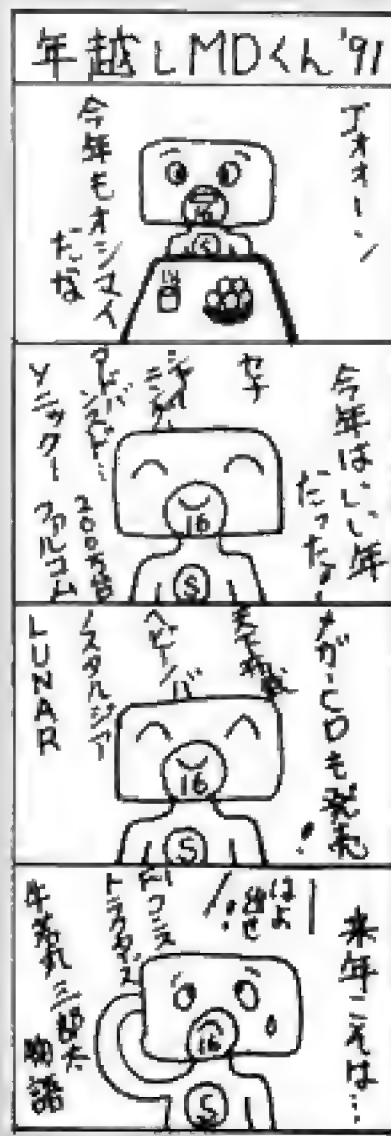 年越しMDくん'91
アオオーン
今年もオシマイ
だな
16
S
今年はいい年
だったなー
セナ
シャイニング
アドバンスド…
200万台
ソニック
ファルコム
16
S
メガ-CDも発売!
天下布武
ヘビーノバ
ノスタルジア
LUNAR
16
S
来年こそは…
はよ
出せ
!
牛若丸三郎太
物語
16
S